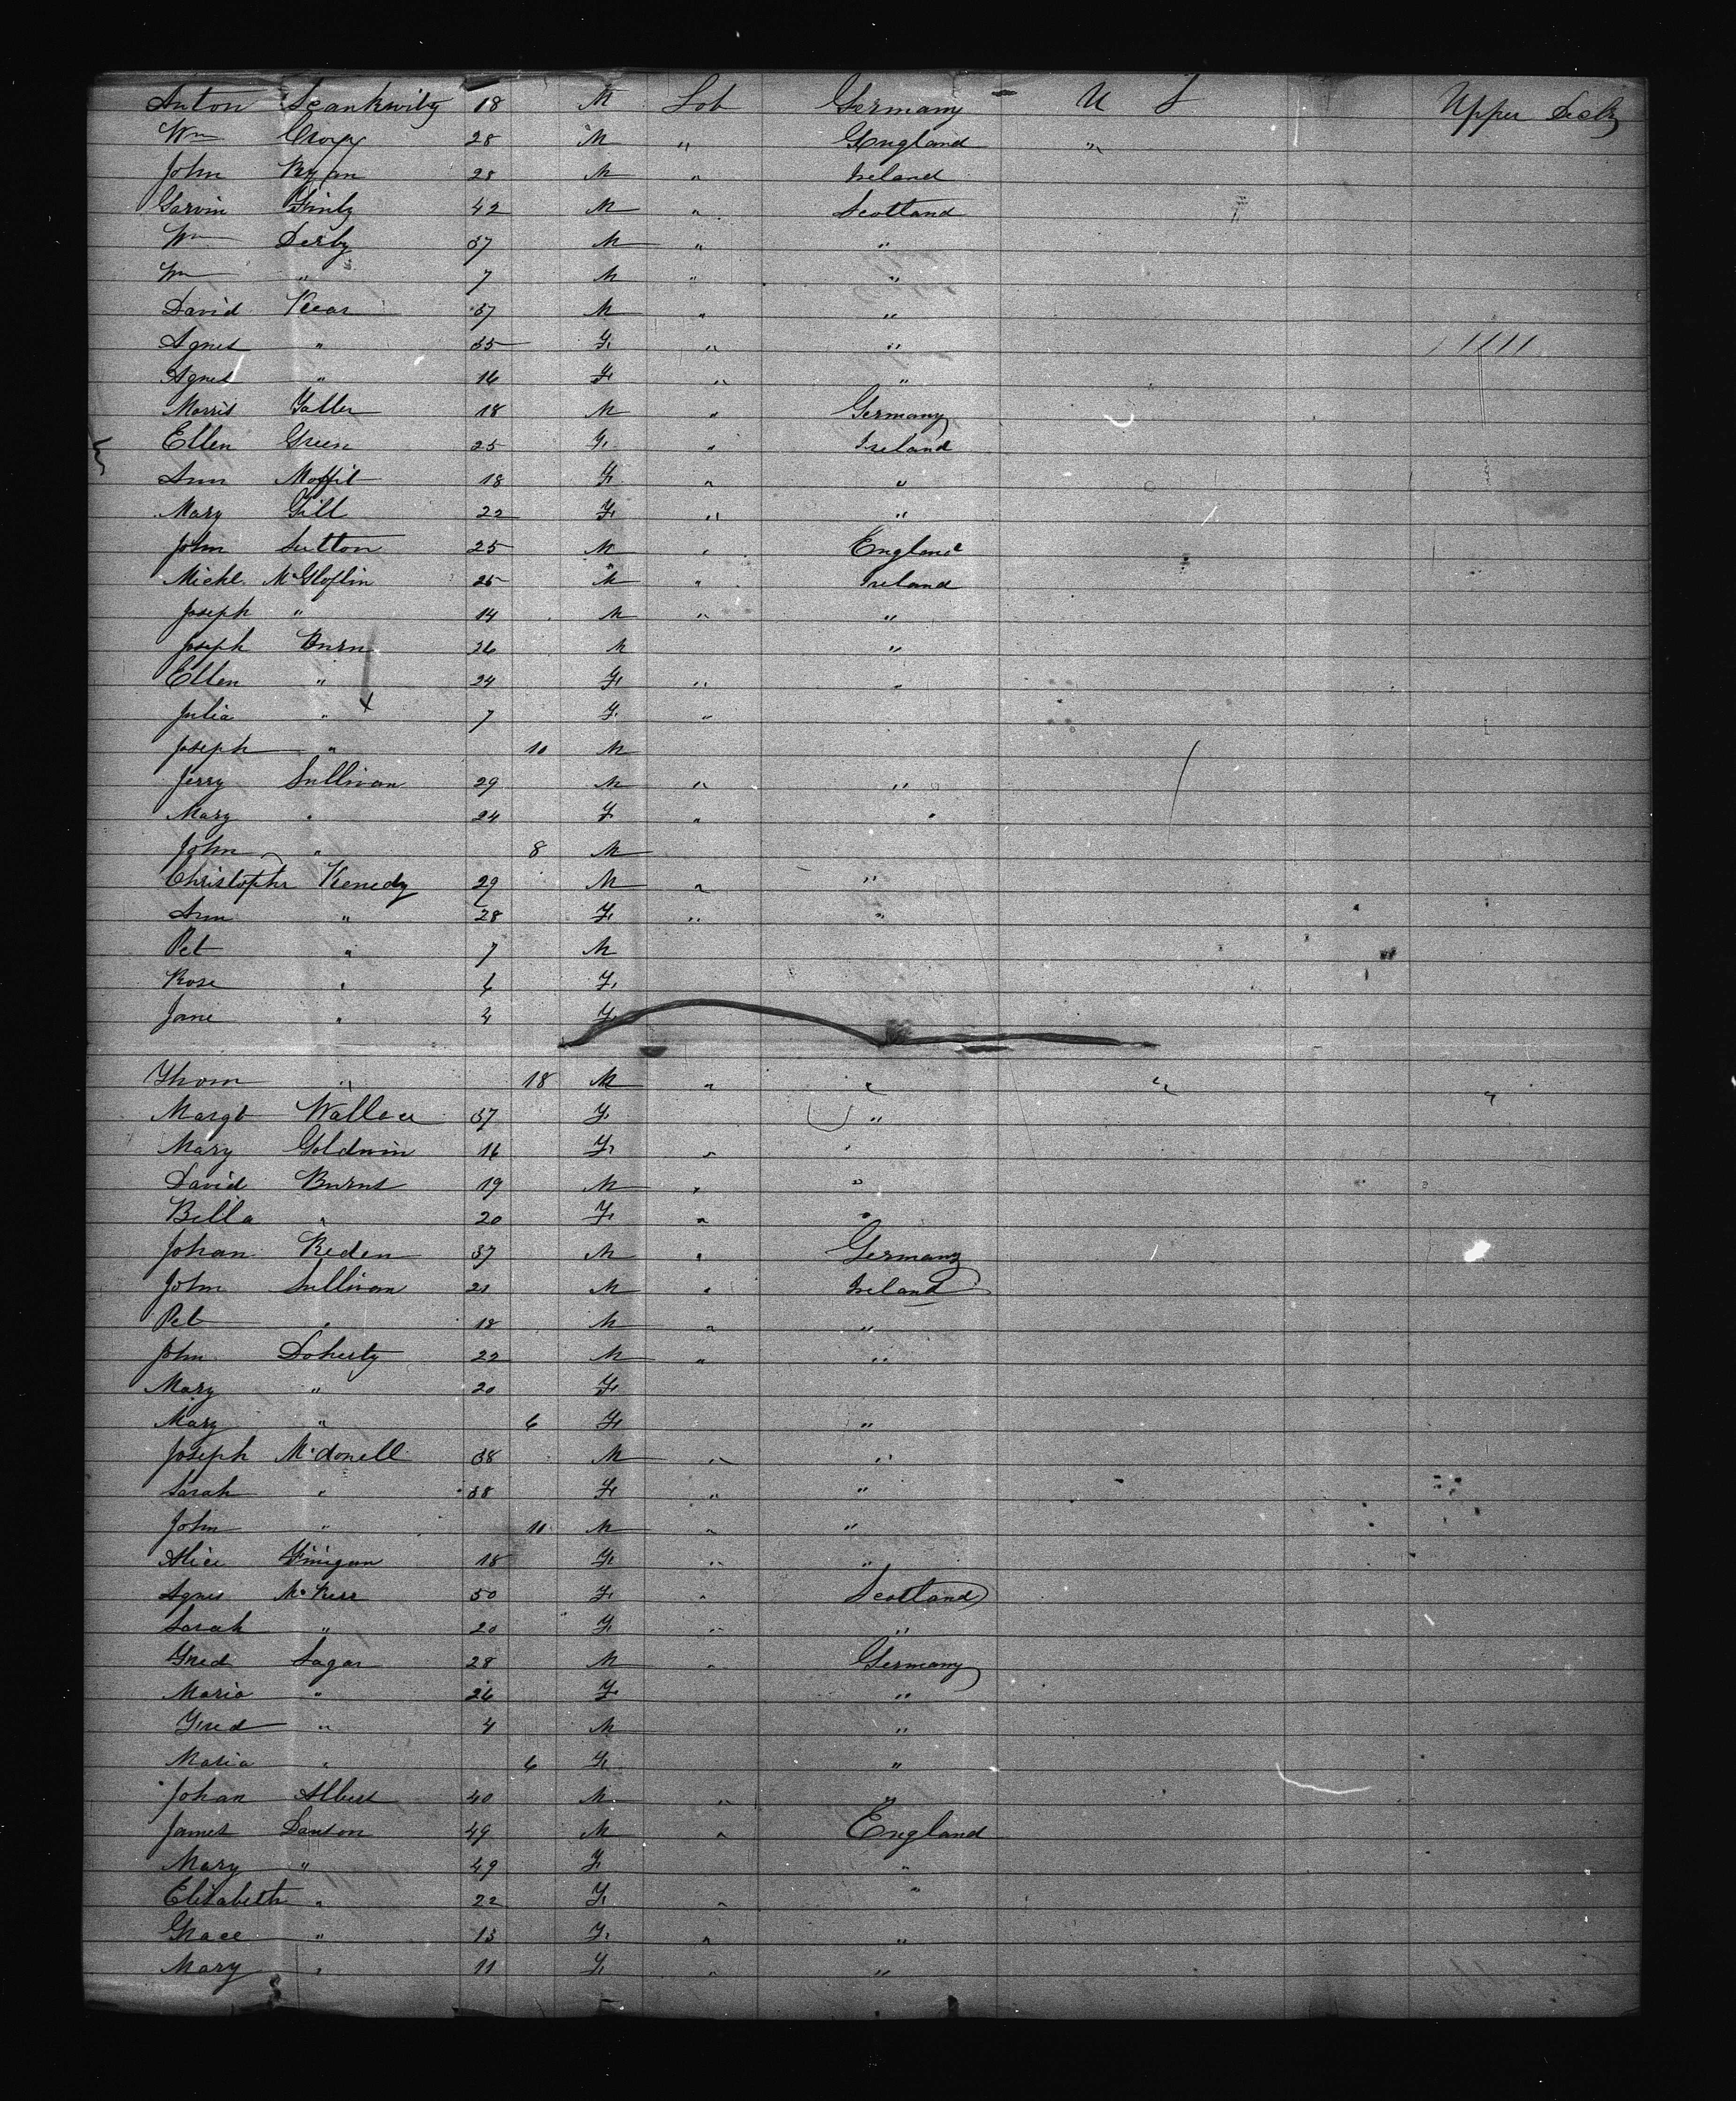 Anton Scankwitz 18 M Lab Germany U S Upper Deck
Wm 28 M " England "
John Ryan 28 M " Ireland
Garvin 42 M " Scotland
Wm Derby 37 M " "
Wm " 7 M " "
David Kear 37 M " "
Agnes " 35 F. " "
Agnes " 16 F " "
Morris 18 M " Germany
Ellen Green 25 F. " Ireland
Ann Moffit 18 F. " "
Mary Gill 22 F. " "
John Sutton 25 M " England
Michl. McGloflin 25 M " Ireland
Joseph " 14 M " "
Joseph Burn 26 M "
Ellen " 24 F. " "
Julia " 7 F. "
Joseph " 10 M
Jerry Sullivan 29 M " "
Mary " 24 F " "
John " 8 M
Christopher Kenedy 29 M " "
Ann " 28 F. " "
Pet " 7 M
Rose " 6 F.
Jane " 4 F.
Thom " 18 M " " " "
Margt Wallace 37 F. "
Mary Goldwin 16 F. " "
David Burns 19 M " "
Bella " 20 F. " "
Johan Reden 37 M " Germany
John Sullivan 21 M " Ireland
Pet " 18 M " "
John Doherty 22 M " "
Mary " 20 F.
Mary " 6 F. "
Joseph McDonell 38 M " "
Sarah " 38 F. " "
John " 11 M " "
Alice Finigan 18 F. " "
Agnes McKerr 50 F. " Scotland
Sarah " 20 F. " "
Fred Sagar 28 M " Germany
Maria " 26 F. "
Fred " 4 M "
Maria " 6 F. "
Johan Albert 40 M " "
James Danson 49 M " England
Mary " 49 F. "
Elizabeth " 22 F. " "
Grace " 13 F. " "
Mary " 11 F. " "